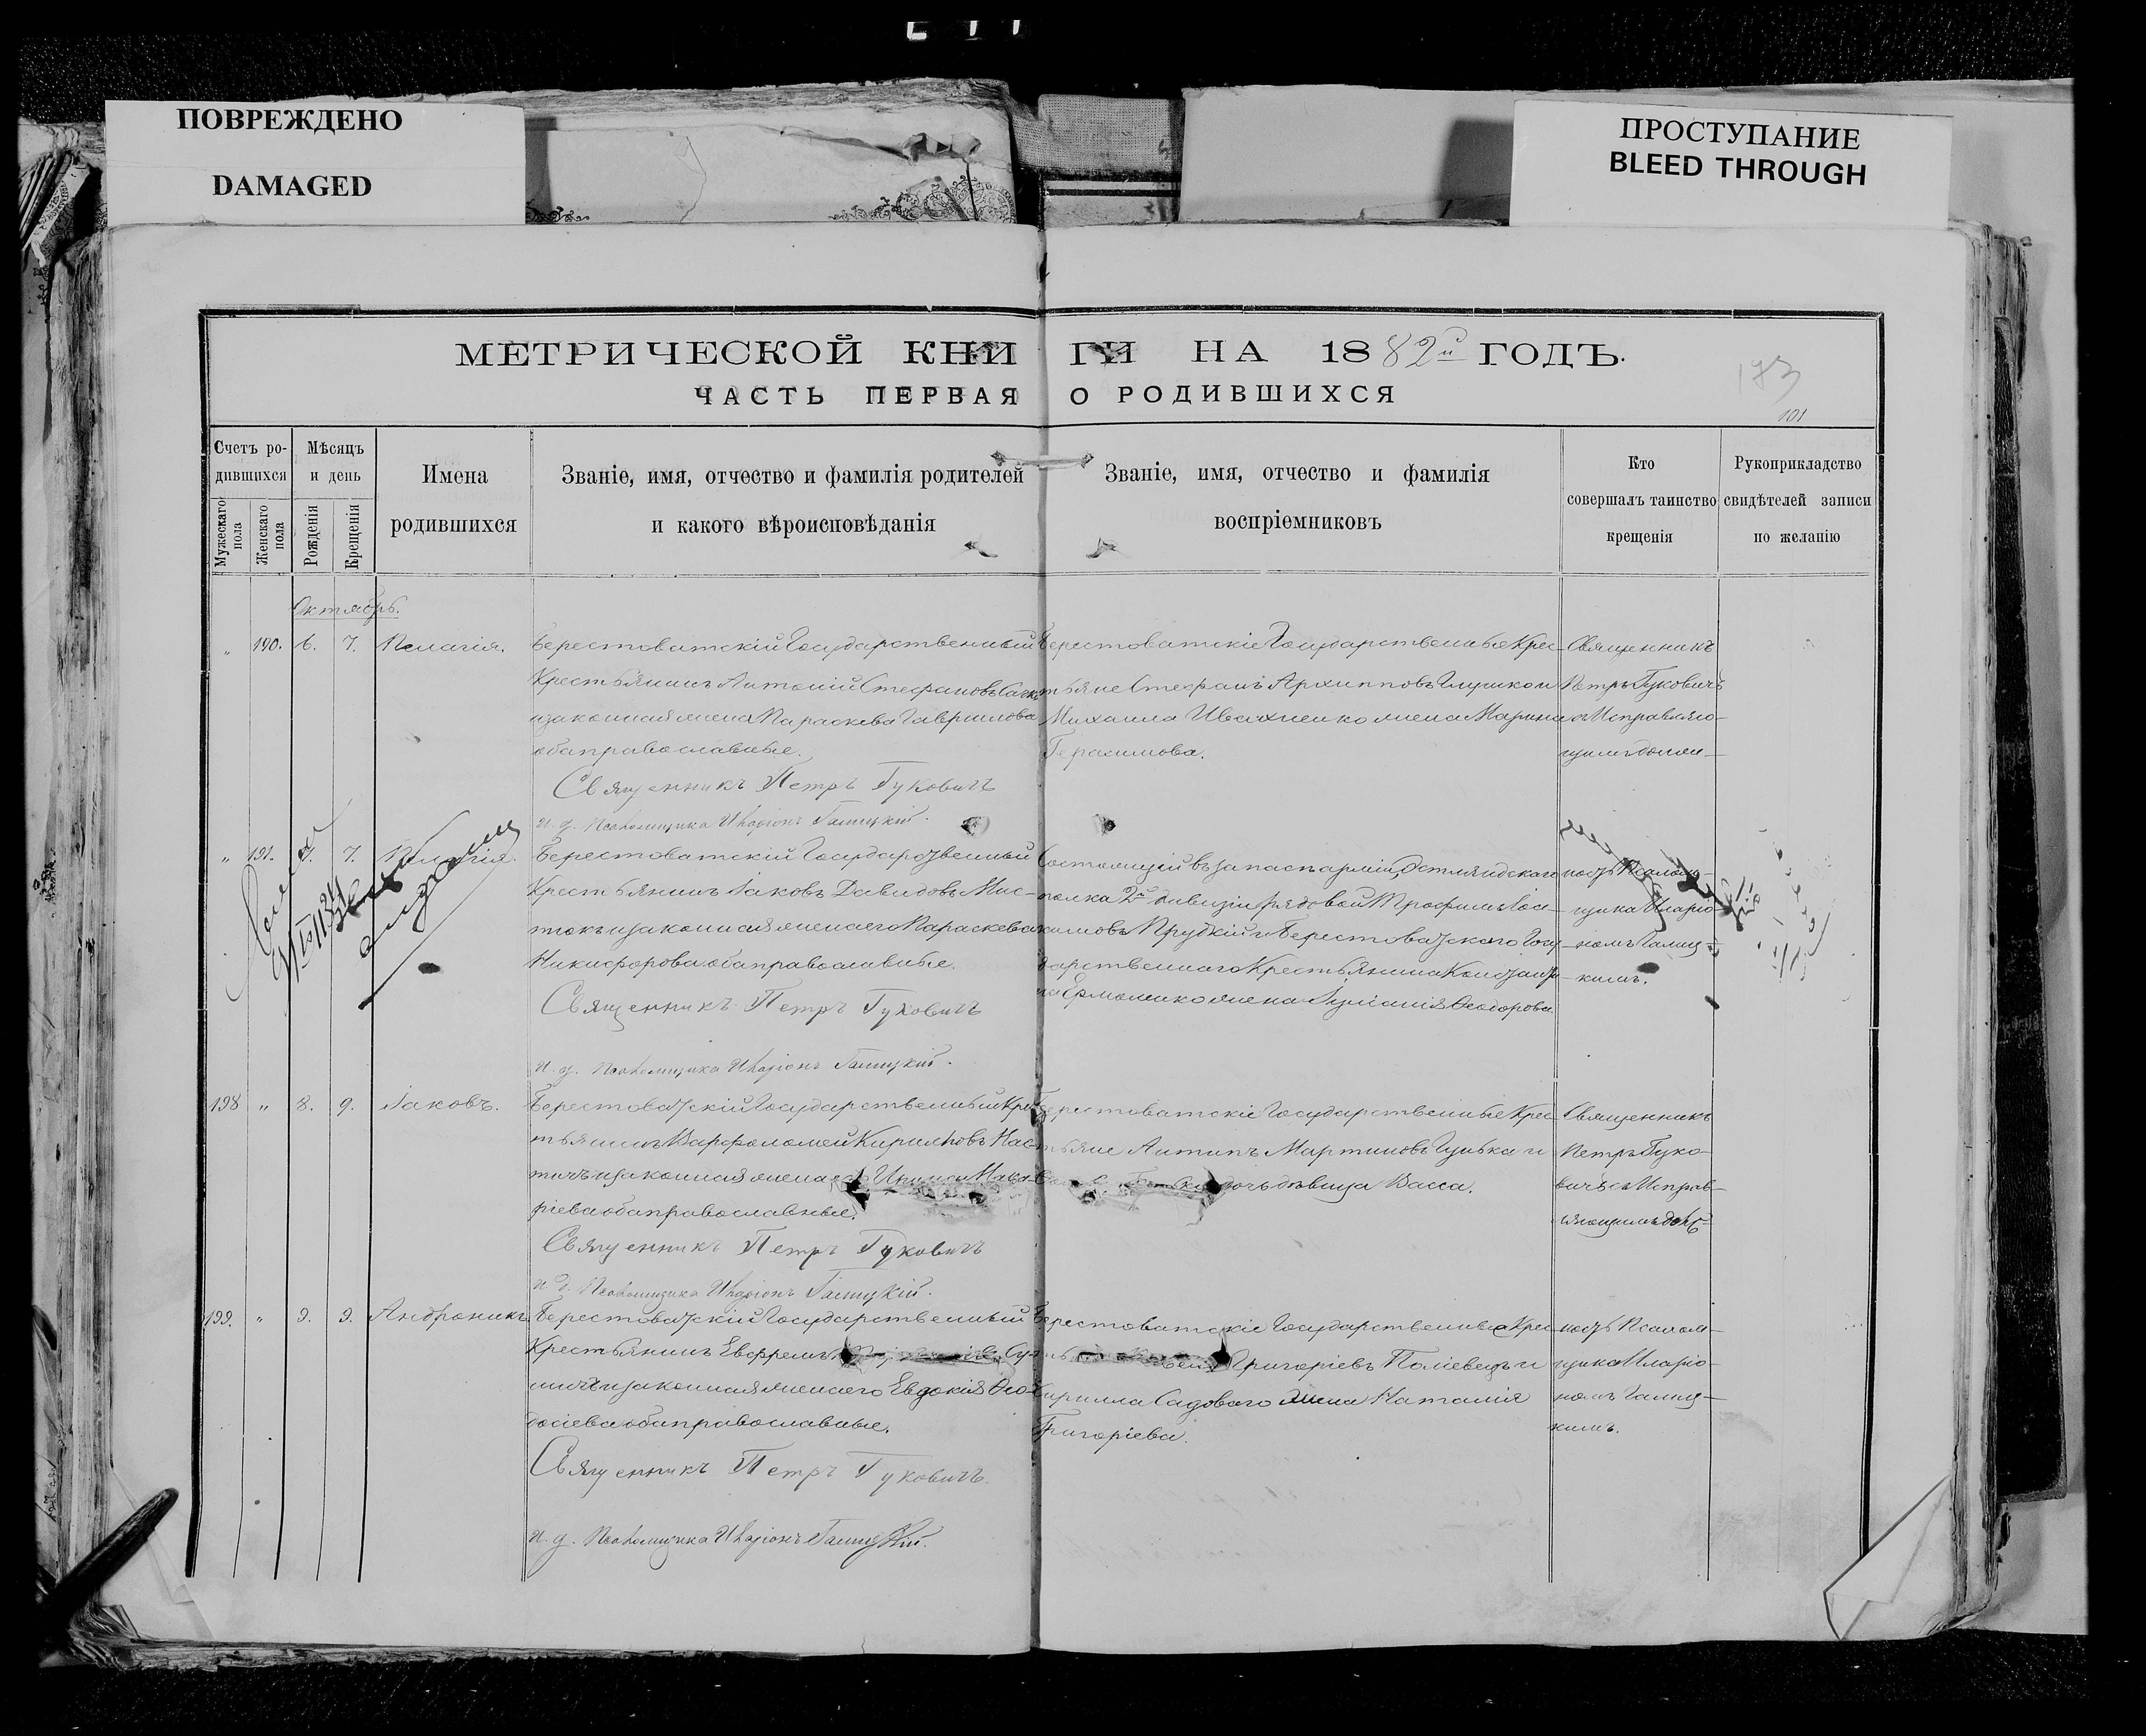 ПОВРЕЖДЕНО
DAMAGED
ПРОСТУПАНИЕ
BLEED THROUGH
МЕТРИЧЕСКОЙ КНИГИ НА 1882й ГОДЪ.
ЧАСТЬ ПЕРВАЯ О РОДИВШИХСЯ
173
101
Счетъ ро-
дившихся
Мужескаго пола
Женскаго пола
Мѣсяцъ
и день
Рожденія
Крещенія
Имена
родившихся
Званіе, имя, отчество и фамилія родителей
и какого вѣроисповѣданія
Званіе, имя, отчество и фамилія
воспріемниковъ
Кто
совершалъ таинство
крещенія
Рукоприкладство
свидѣтелей записи
по желанію
Октябрь.
" 190. 6. 7. Пелагія.
Берестоватскій Государственный
Крестьянинъ Антоній Стефановъ
и законная жена Параскева Гаврилова
оба православные.
Священникъ Петръ Гуковичъ
и. д. Псаломщика Иларіонъ Галицкій.
Берестоватскіе Государственные Крес-
тьяне Стефанъ Архипповъ Глушко и
Михаила Ивахненко жена Марина
Герасимова.
Священникъ
Петръ Гуковичъ
съ Исправляю-
щимъ должн-
" 191. 7. Пелагія.
Берестоватскій Государственный
Крестьянинъ Іаковъ Давидовъ Мис-
токъ и законная жена его Параскева
Никифорова оба православные.
Священникъ Петръ Гуковичъ
и. д. Псаломщика Иларіонъ Галицкій.
Состоящій въ запасѣ арміи, Эстляндскаго
полка 2й дивизіи рядовой Трофимъ Іоа-
кимовъ Прудкій и Берестоватскаго Госу-
дарственнаго Крестьянина Константи-
на Ермоленко жена Іуліанія Ѳеодорова
ность Псалом-
щика Иларіо-
номъ Галиц-
кимъ.
198 " 8. 9. Іаковъ.
Берестоватскій Государственный Крес-
тьянинъ Варфоломей Кирилловъ
и законная жена его Ирина Мака-
ріева оба православные.
Священникъ Петръ Гуковичъ
и. д. Псаломщика Иларіонъ Галицкій.
Берестоватскіе Государственные Крес-
тьяне Антипъ Мартиновъ Гулька и
дочь дѣвица Васса.
Священникъ
Петръ Гуко-
вичъ съ Исправ-
ляющимъ долж-
199. " 9. 9. Андроникъ.
Берестоватскій Государственный
Крестьянинъ Евфремъ
и законная жена его Евдокія Ѳео-
досіева оба православные.
Священникъ Петръ Гуковичъ.
и. д. Псаломщика Иларіонъ Галицкій.
Берестоватскіе Государственные Крес-
Григоріевъ Поліевецъ и
Кирилла Садоваго жена Наталія
Григоріева.
ность Псалом-
щика Иларіо-
номъ Галиц-
кимъ.